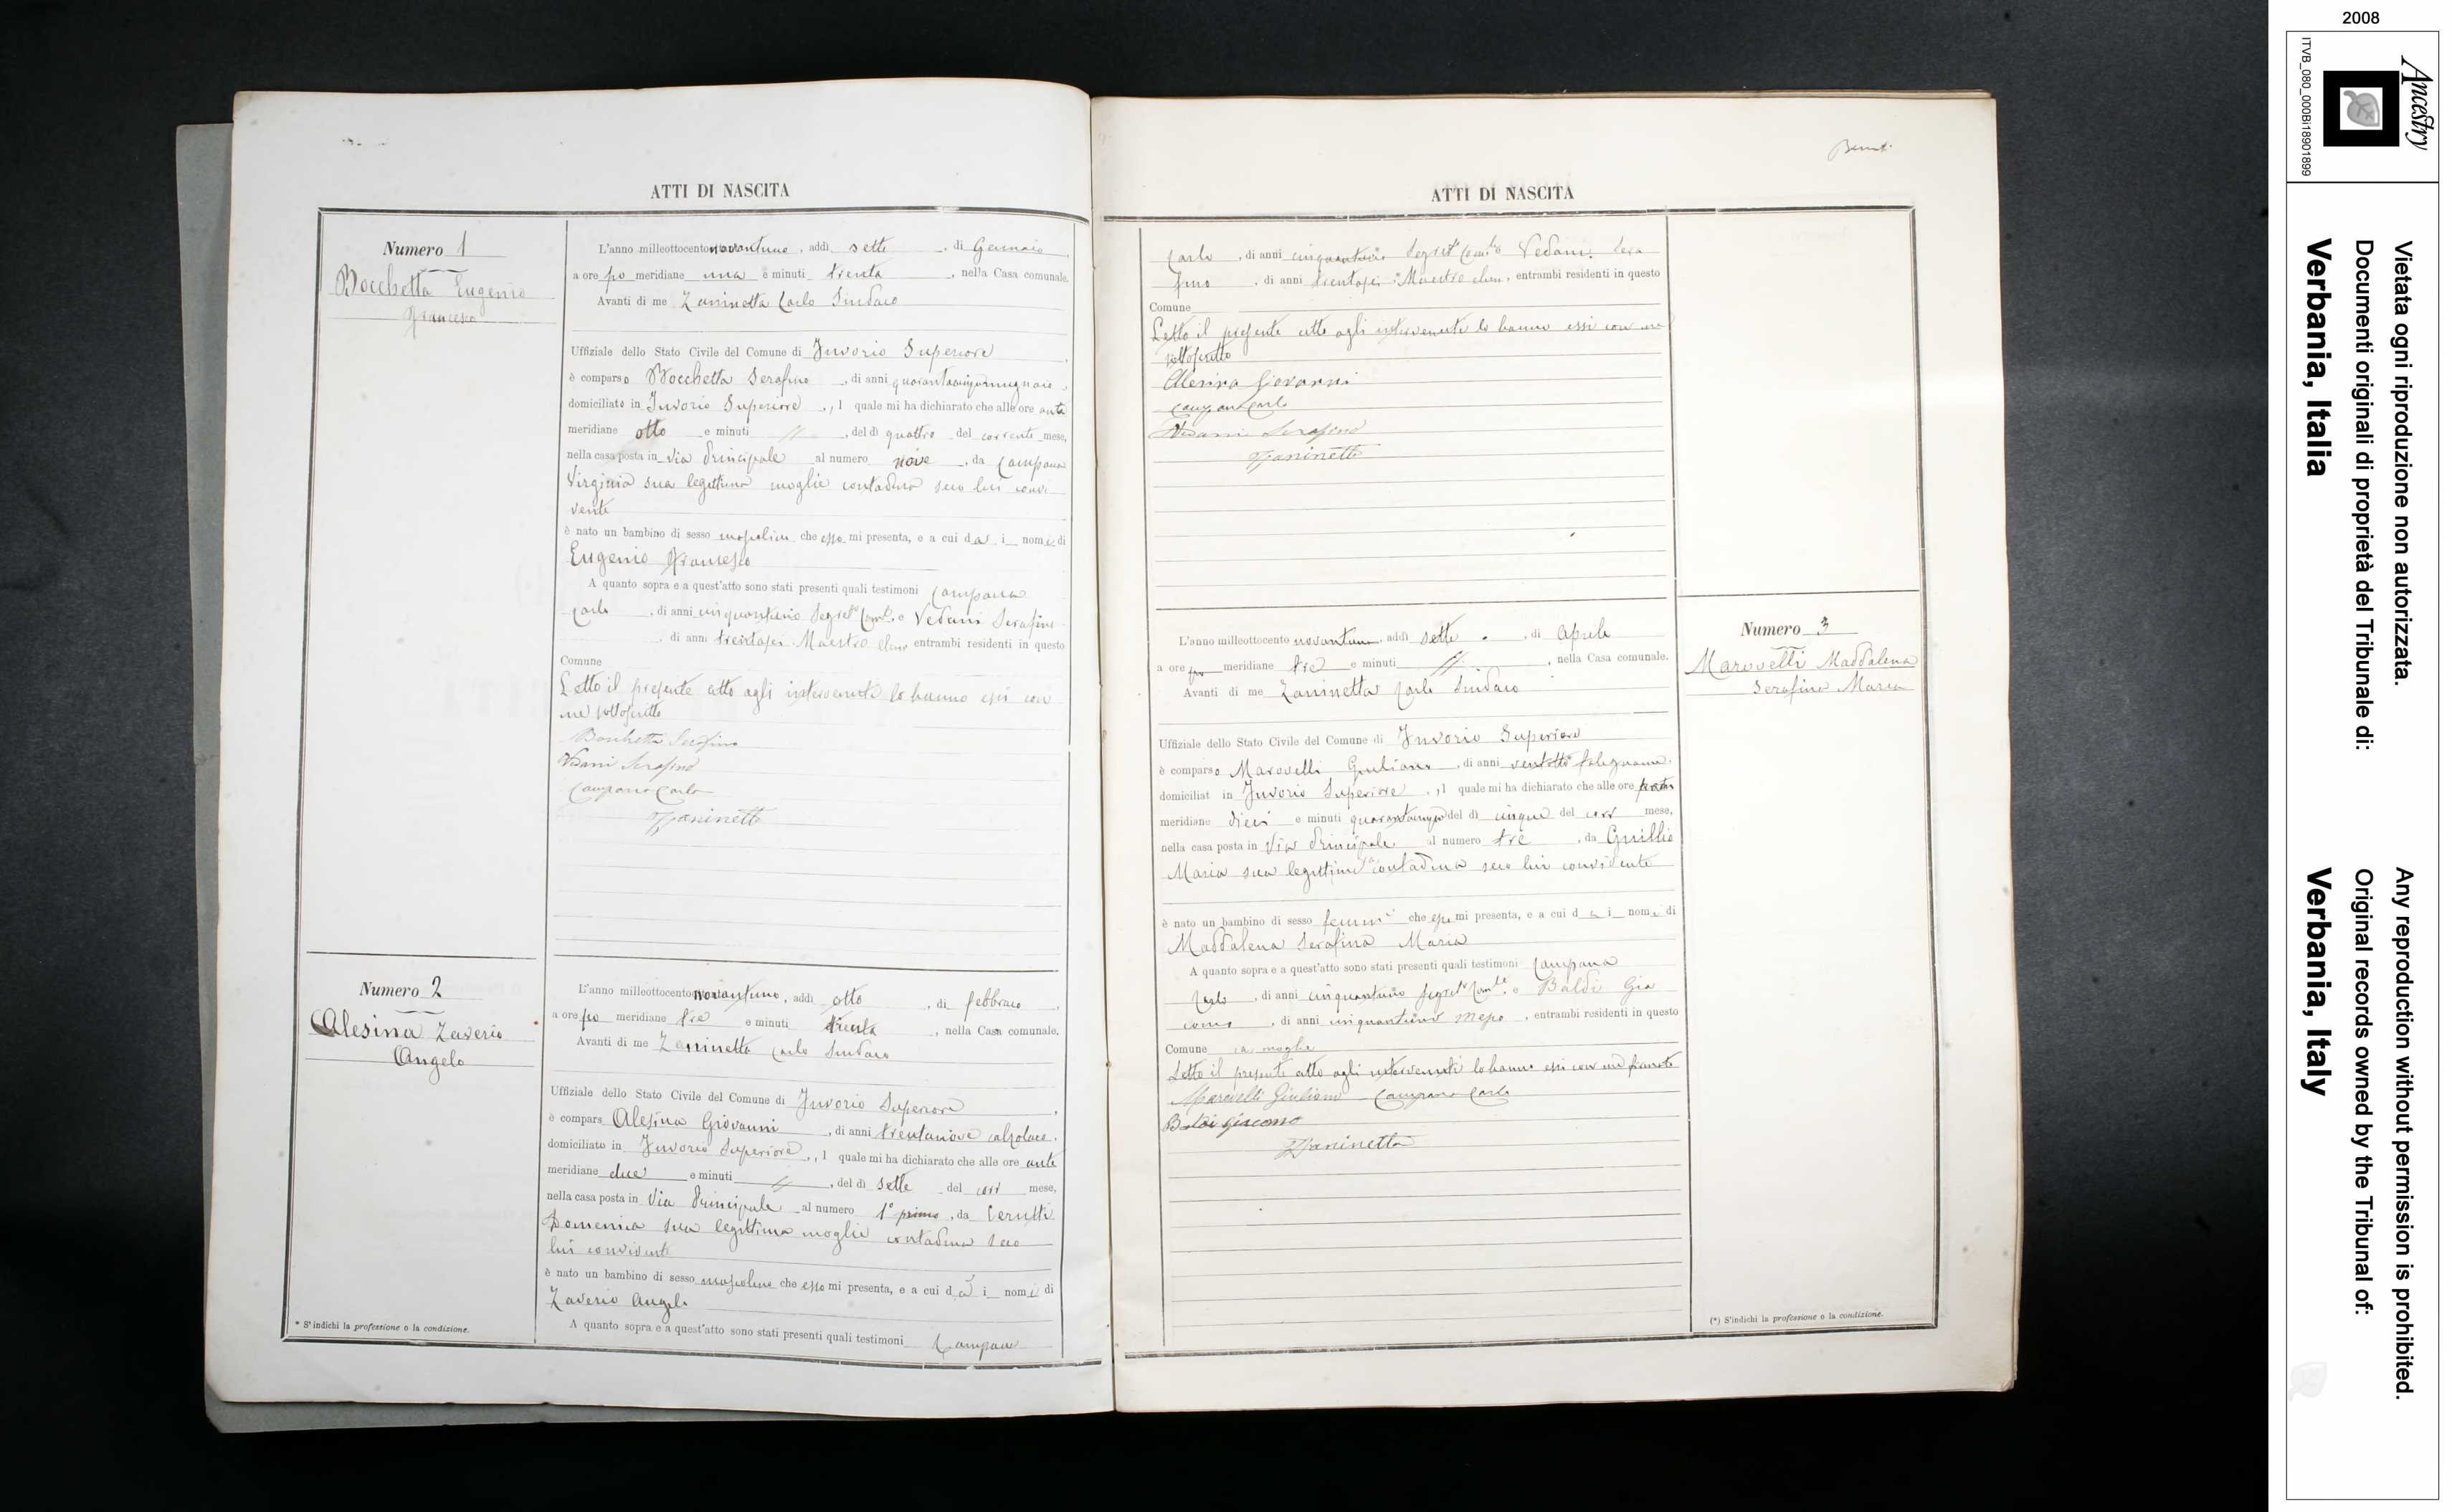 ATTI DI NASCITA
Numero 1
Bocchetta Eugenio
Francesco
L'anno milleottocento novantuno, addì sette, di Gennaio,
a ore po meridiane una e minuti trenta, nella Casa comunale.
Avanti di me Zaninetta Carlo Sindaco
Uffiziale dello Stato Civile del Comune di Invorio Superiore,
è comparso Bocchetta Serafino, di anni quarantacinque
domiciliato in Invorio Superiore, il quale mi ha dichiarato che alle ore ante
meridiane otto e minuti //, del dì quattro del corrente mese,
nella casa posta in via Principale al numero nove, da Campana
Virginia sua legittima moglie contadina seco lui convi
vente
è nato un bambino di sesso mascolino che esso mi presenta, e a cui dà i nomi di
Eugenio Francesco
A quanto sopra e a quest'atto sono stati presenti quali testimoni Campana
Carlo, di anni cinquantuno Segret° Com.le e Vedani Serafino
, di anni trentasei Maestro elem entrambi residenti in questo
Comune
Letto il presente atto agli intervenuti lo hanno essi con
me sottoscritto
Bocchetta Serafino
Vedani Serafino
Campana Carlo
Zaninetta
Numero 2
Alesina Zaverio
Angelo
L'anno milleottocento novantuno, addì otto, di febbraio,
a ore po meridiane tre e minuti trenta, nella Casa comunale.
Avanti di me Zaninetta Carlo Sindaco
Uffiziale dello Stato Civile del Comune di Invorio Superiore,
è compars Alesina Giovanni, di anni trentanove calzolaio.
domiciliato in Invorio Superiore, il quale mi ha dichiarato che alle ore ante
meridiane due e minuti //, del dì sette del corr mese,
nella casa posta in Via Principale al numero 1° primo, da Cerutti
Domenica sua legittima moglie contadina seco
lui convivente
è nato un bambino di sesso mascolino che esso mi presenta, e a cui dà i nomi di
Zaverio Angelo
A quanto sopra e a quest'atto sono stati presenti quali testimoni Campana
* S'indichi la professione o la condizione.
ATTI DI NASCITA
Carlo, di anni cinquantuno Segret° Com.le e Vedani Sera
fino, di anni trentasei Maestro elem, entrambi residenti in questo
Comune
Letto il presente atto agli intervenuti lo hanno essi con me
sottoscritto
Alesina Giovanni
Campana Carlo
Vedani Serafino
Zaninetta
Numero 3
Marovelli Maddalena
Serafina Maria
L'anno milleottocento novantuno, addì sette, di Aprile
a ore po meridiane tre e minuti //, nella Casa comunale.
Avanti di me Zaninetta Carlo Sindaco
Uffiziale dello Stato Civile del Comune di Invorio Superiore
è comparso Marovelli Giuliano, di anni ventotto falegname.
domiciliat in Invorio Superiore, il quale mi ha dichiarato che alle ore
meridiane dieci e minuti quarantacinque del dì cinque del corr mese,
nella casa posta in Via Principale al numero tre, da Guillio
Maria sua legittima contadina seco lui convivente
è nato un bambino di sesso femmi che esso mi presenta, e a cui dà i nomi di
Maddalena Serafina Maria
A quanto sopra e a quest'atto sono stati presenti quali testimoni Campana
Carlo, di anni cinquantuno Segret° Com.le e Baldi Gia
como, di anni cinquantuno Messo, entrambi residenti in questo
Comune moglie
Letto il presente atto agli intervenuti lo hanno essi con me firmato
Marovelli Giuliano Campana Carlo
Baldi Giacomo
Zaninetta
(*) S'indichi la professione o la condizione.
2008
Ancestry
ITVB_080_000Bi18901899
Vietata ogni riproduzione non autorizzata.
Documenti originali di proprietà del Tribunale di:
Verbania, Italia
Any reproduction without permission is prohibited.
Original records owned by the Tribunal of:
Verbania, Italy